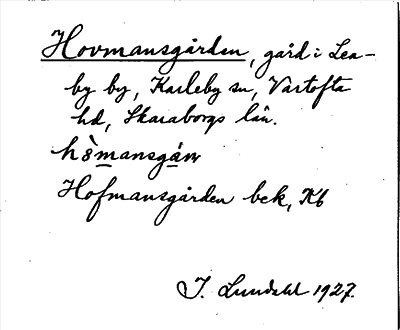 Hovmansgården, gård i Lea-
by by, Karleby sn, Vartofta
hd, Skaraborgs län.
hòmansgáṇ
Hofmansgården bek, Kb
I. Lundahl 1927.